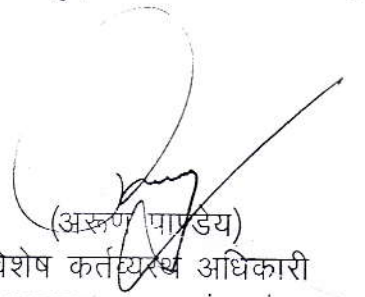 (अरूण पाण्डेय)
विशेष कर्तव्यस्थ अधिकारी